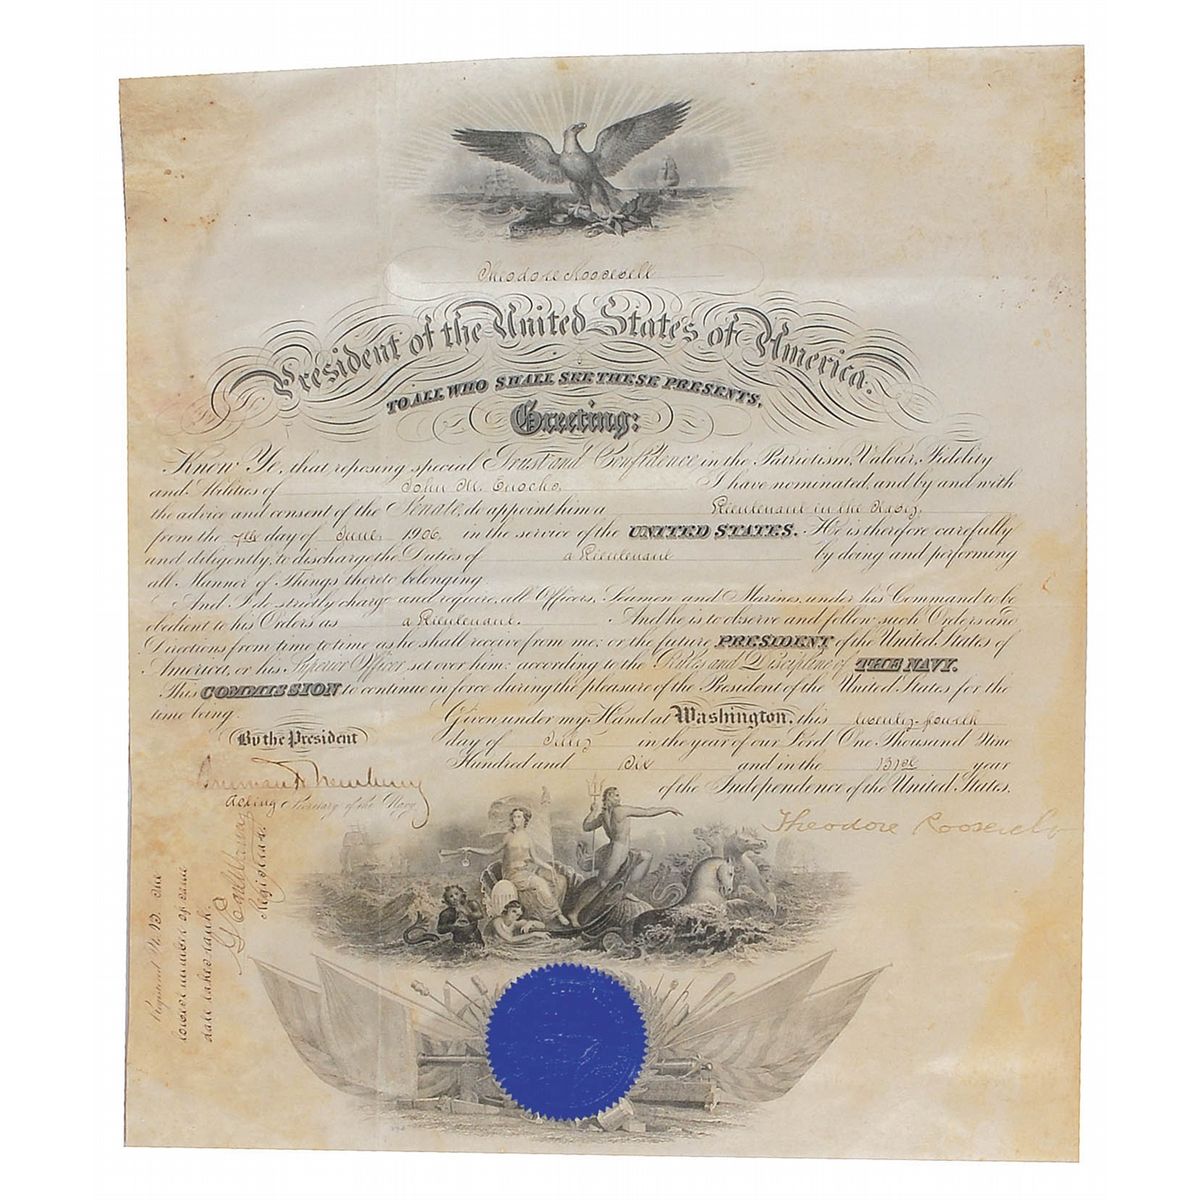 Theodore Roosevelt
President of the United States of America.
TO ALL WHO SHALL SEE THESE PRESENTS,
Greeting:
Know Ye, that reposing special Trust and Confidence in the Patriotism, Valour, Fidelity
and Abilities of John M. Enochs, I have nominated, and by and with
the advice and consent of the Senate, do appoint him a Lieutenant in the Navy,
from the 7th day of June, 1906, in the service of the UNITED STATES. He is therefore carefully
and diligently, to discharge the Duties of a Lieutenant by doing and performing
all Manner of Things thereto belonging
And I do strictly charge and require, all Officers, Seamen and Marines, under his Command to be
obedient to his Orders as a Lieutenant. And he is to observe and follow such Orders and
Directions from time to time as he shall receive from me; or the future PRESIDENT of the United States of
America, or his Superior Officer set over him; according to the Rules and Discipline of THE NAVY.
This COMMISSION to continue in force during the pleasure of the President of the United States for the
time being.
Given under my Hand at Washington, this twenty-fourth
By the President
day of July in the year of our Lord One Thousand Nine
Hundred and Six and in the 131st year
of the Independence of the United States.
Truman H. Newberry
Acting Secretary of the Navy.
Theodore Roosevelt
Register.
Registered No.
lowest number of same
date takes rank.